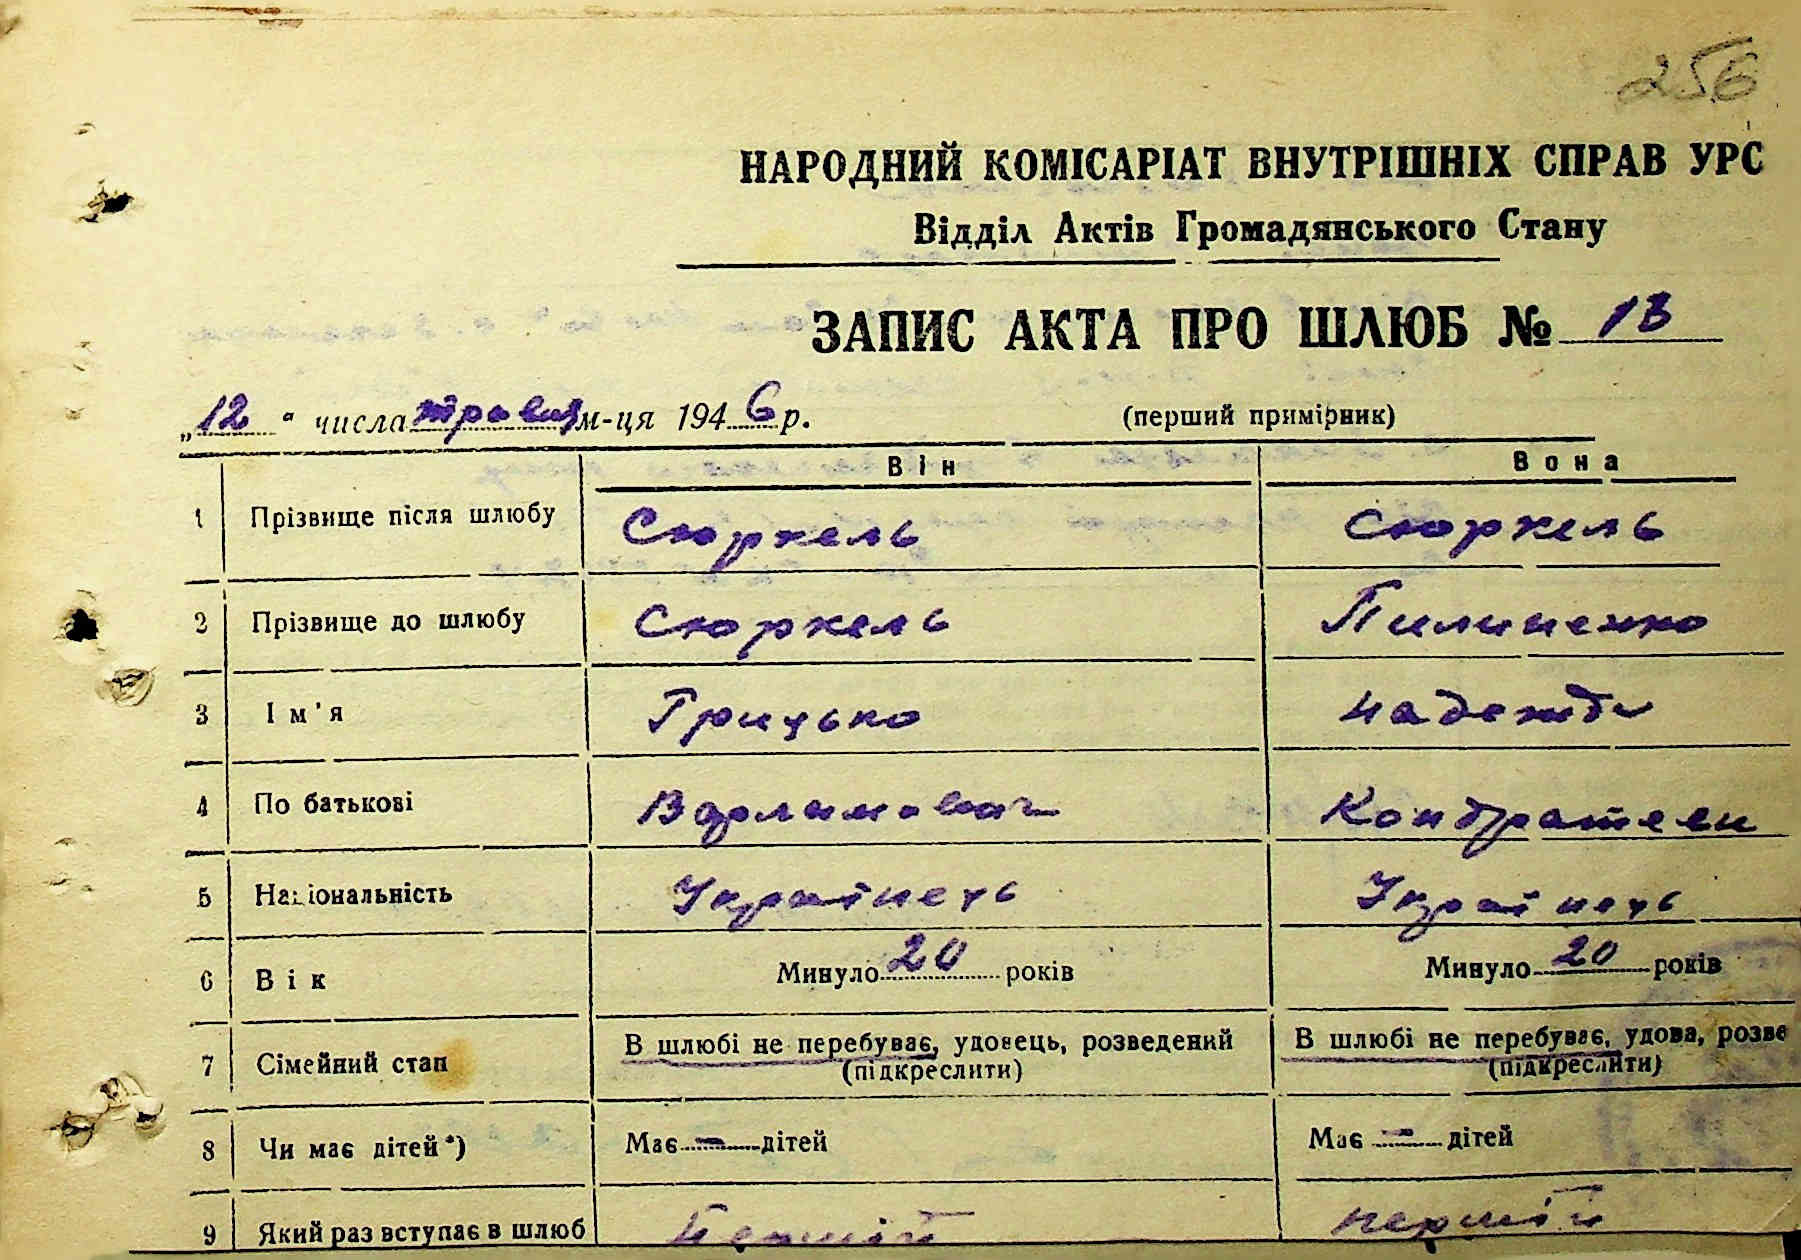 256
НАРОДНИЙ КОМІСАРІАТ ВНУТРІШНІХ СПРАВ УРС
Відділ Актів Громадянського Стану
ЗАПИС АКТА ПРО ШЛЮБ № 13
„12“ числа травня м-ця 1946 р. (перший примірник)
Він Вона
1 Прізвище після шлюбу Сюркель Сюркель
2 Прізвище до шлюбу Сюркель Пилипенко
3 Ім'я Грицько Надежда
4 По батькові Варлимович Кондратеви
5 Національність Українець Українець
6 Вік Минуло 20 років Минуло 20 років
7 Сімейний стан В шлюбі не перебуває, удовець, розведений В шлюбі не перебуває, удова, розве
(підкреслити) (підкреслити)
8 Чи має дітей*) Має — дітей Має — дітей
9 Який раз вступає в шлюб Перший перший